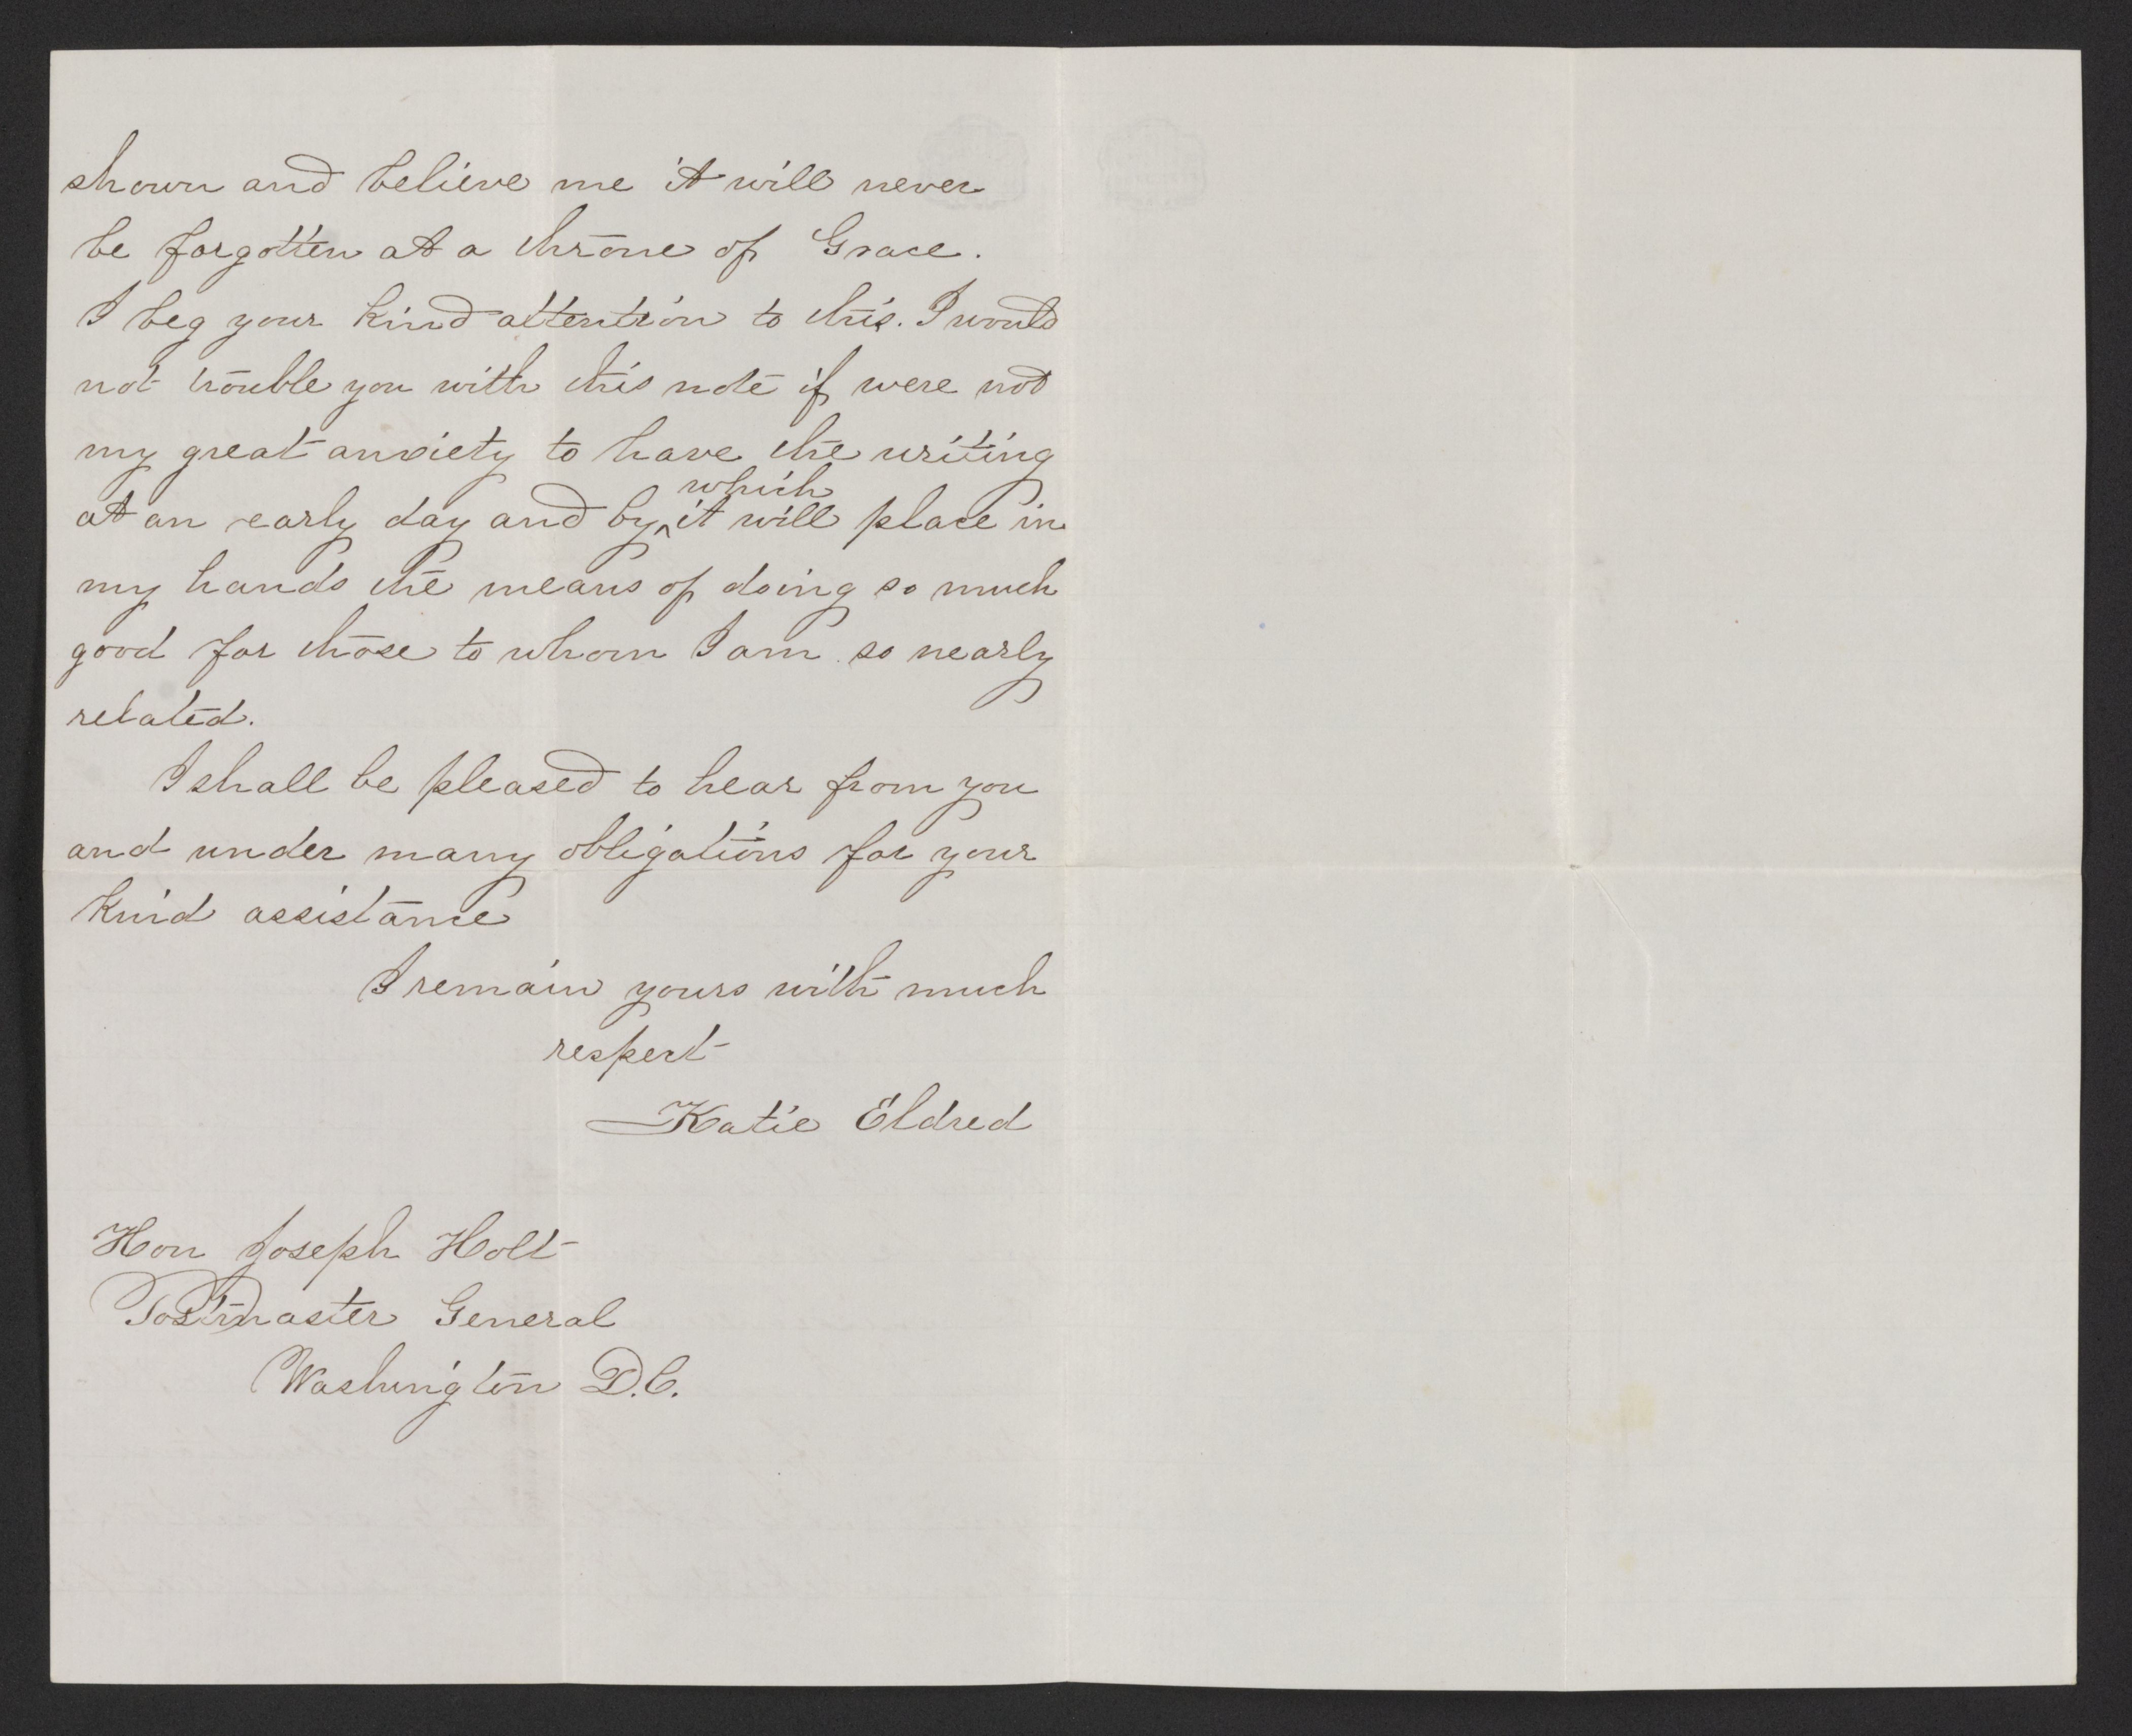 shown and believe me it will never
be forgotten at a throne of Grace.
I beg your kind attention to this. I would
not trouble you with this note if were not
my great anxiety to have the writing
at an early day and by which it will place in
my hands the means of doing so much
good for those to whom I am so nearly
related.
I shall be pleased to hear from you
and under many obligations for your
kind assistance
I remain yours with much
respect
Katie Eldred
Hon Joseph Holt
Postmaster General
Washington D.C.